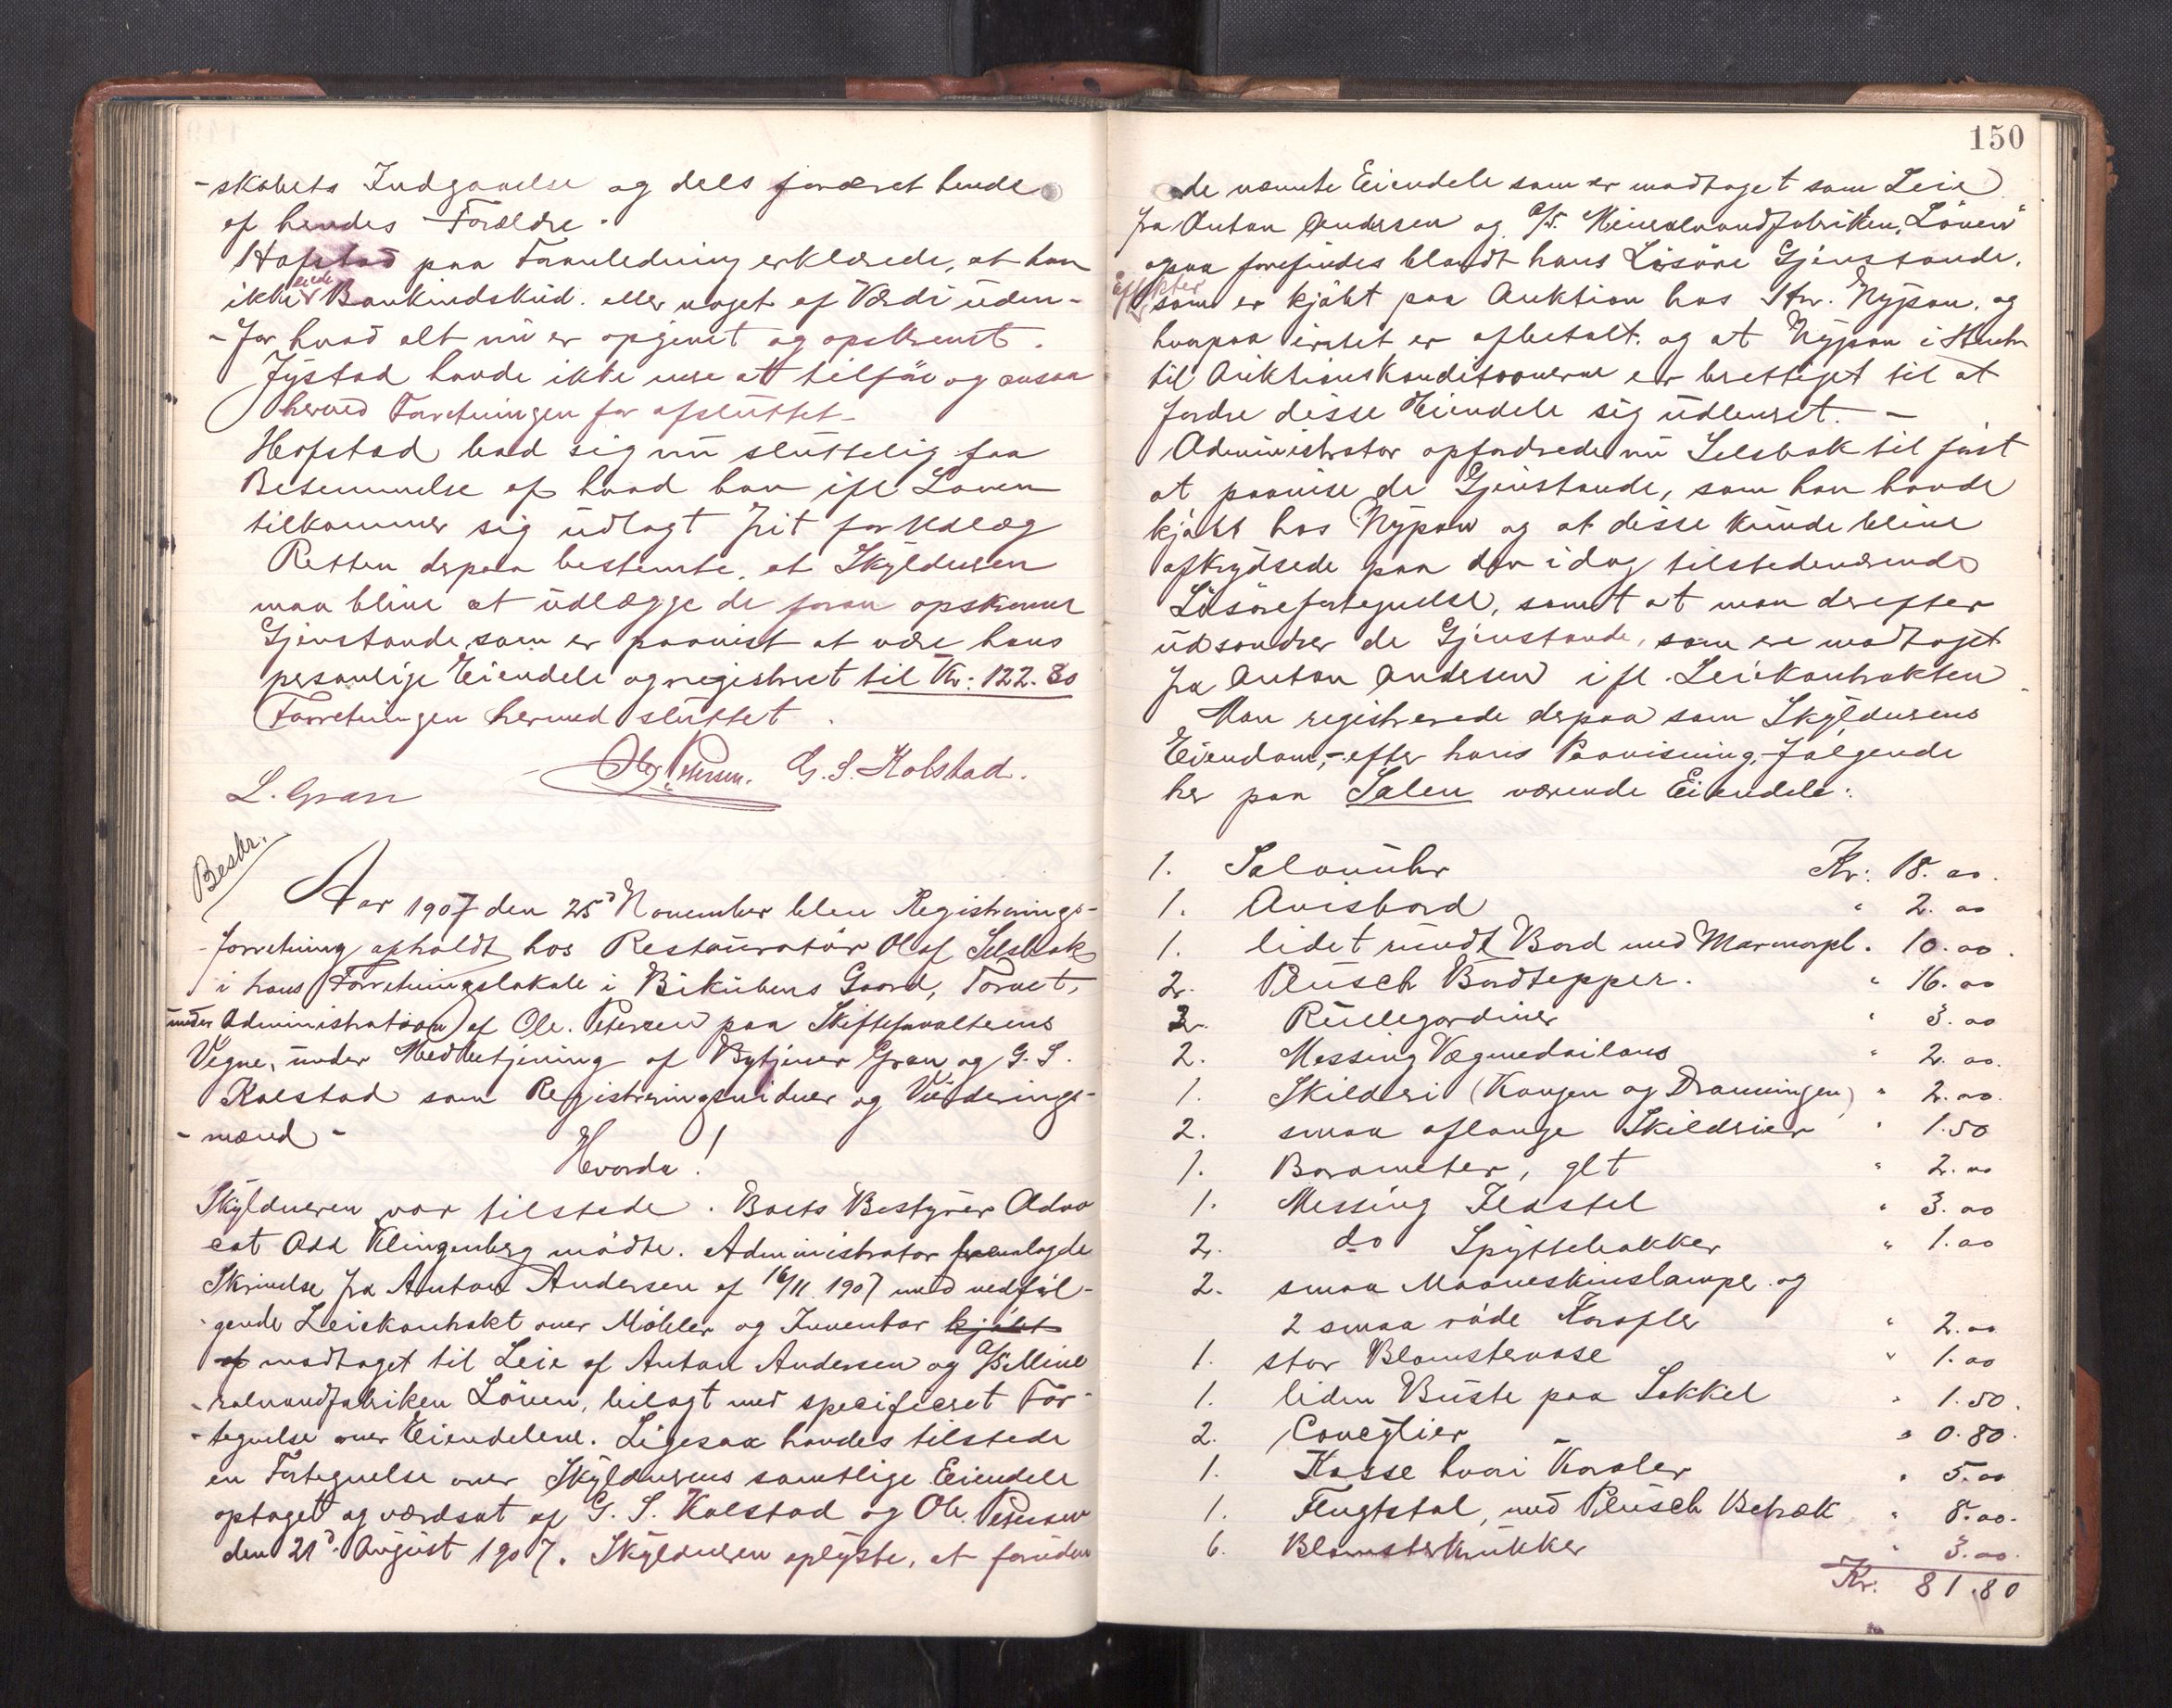 -skabets Indgaaelse og dels foræret hende
af hendes Forældre.
Hafstad paa Foranledning erklærede, at han
ikke eiede Bankindskud. eller noget af Værdi uden-
-for hvad alt nu er opgivet og opskrevet.
Jystad havde ikke mere at tilføie og ansaa
hermed Forretningen for afsluttet.
Hofstad bad sig nu sluttelig faa
Bestemmelse af hvad han ifl Loven
tilkommer sig udlagt frit for Udlæg
Retten derpaa bestemte, at Skyldneren
maa blive at udlægge de foran opskrevne
Gjenstande, som er paavist at være hans
personlige Eiendele og registreret til Kr: 122.80
Forretningen hermed sluttet.
Ole Petersen. G. S. Kolstad.
L. Gran
Beskr.
Aar 1907 den 25d November blev Registrerings-
-forretning afholdt hos Restauratør Olaf Selsbak
i hans Forretningslokale i Bikubens Gaard, Torvet,
under Administration af Ole. Petersen paa Skifteforvalterens
Vegne, under Medbetjening af Bytjener Gran og G. S.
Kolstad som Registreringsvidner og Vurderings-
-mænd-
Hvorda!
Skyldneren var tilstede. Boets Bestyrer Advo
cat Odd Klingenberg mødte. Administrator fremlagde
Skrivelse fra Anton Andersen af 16/11 1907 med vedføl-
-gende Leiekontrakt over Møbler og Inventar kjøbt
af modtaget til Leie af Anton Andersen og A/S Mine
-ralvandfabriken Løven, bilagt med specificeret For-
-tegnelse over Eiendelene. Ligesaa havdes tilstede
en Fortegnelse over Skyldnerens samtlige Eiendele
optaget og værdsat af G. S. Kolstad og Ole Petersen
den 21d August 1907. Skyldneren oplyste, at foruden
150
de nævnte Eiendele som er modtaget som Leie
fra Anton Andersen og A/S. Mineralvandfabriken "Løven"
ogsaa forefindes blandt hans Løsøre Gjenstande.
Effekter som er kjøbt paa Auktion hos Hr. Nypan, og
hvorpaa intet er afbetalt. og at Nypan i Henh
til Auktionskonditionerne er berettiget til at
fordre disse Eiendele sig udleveret. -
Administrator opfordrede nu Selsbak til først
at paavise de Gjenstande, som han havde
kjøbt hos Nypan og at disse kunde blive
afkrydsede paa den idag tilstedeværende
Løsørefortegnelse, samt at man derefter
udsondrer de Gjenstande, som er modtaget
fra Anton Andersen ifl. Leiekontrakten.
Man registrerede derpaa som Skyldnerens
Eiendom, - efter hans Paavisning, følgende
her paa Salen værende Eiendele:
1. Salonuhr Kr: 18.00.
1. Avisbord " 2.00
1. lidet rundt Bord med Marmorpl. 10.00.
2. Plusch Bordtepper. " 16.00
2. Rullegardiner " 3.00
2. Messing Vægmedailons " 2.00.
1. Skilderi (Kongen og Dronningen) " 2.00.
2. smaa aflange Skilderier " 1.50
1. Barometer, glt " 2.00
1. Messing Ildstel " 3.00
2. do Spyttebakker " 1.00
2. smaa Maaneskinslampe og
2 smaa røde Karafler " 2.00
1. stor Blomstervase " 1.00
1. liden Buste paa Sokkel " 1.50.
2. Conçylier " 0.80.
1. Kasse hvori Koraler " 5.00
1. Flugtstol, med Plusch Betræk " 8.00.
6. Blomsterkrukker " 3.00.
Kr: 81.80